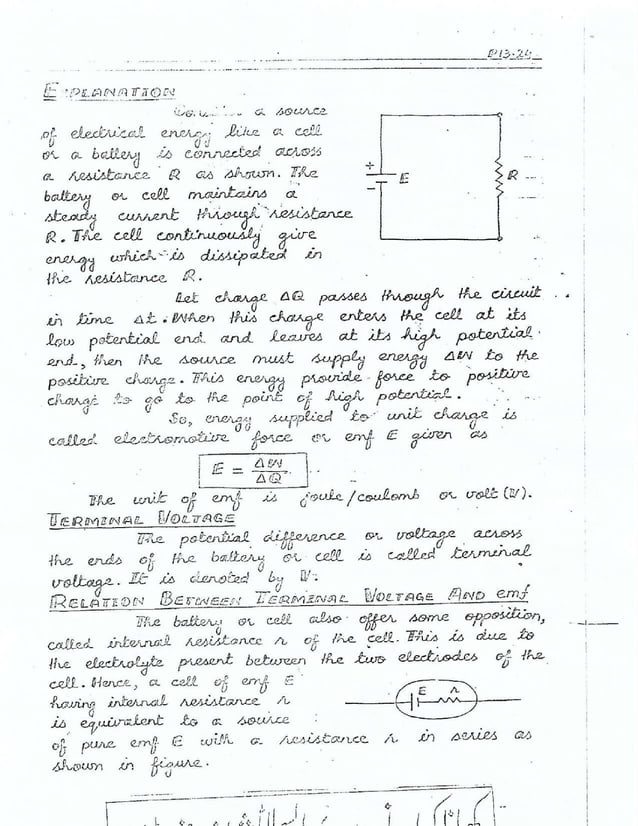 P13-24
EXPLANATION
Consider a source
of electrical energy like a cell
or a battery is connected across
a resistance R as shown. The
battery or cell maintains a
steady current through resistance
R. The cell continuously give
energy which is dissipated in
the resistance R.
+
E
-
R
Let charge ΔQ passes through the circuit
in time Δt. When this charge enters the cell at its
low potential end and leaves at its high potential
end, then the source must supply energy ΔW to the
positive charge. This energy provide force to positive
charge to go to the point of high potential.
So, energy supplied to unit charge is
called electromotive force or emf E given as
E = ΔW/ΔQ
The unit of emf is joule/coulomb or volt (V).
TERMINAL VOLTAGE
The potential difference or voltage across
the ends of the battery or cell is called terminal
voltage. It is denoted by V.
RELATION BETWEEN TERMINAL VOLTAGE AND emf
The battery or cell also offer some opposition,
called internal resistance r of the cell. This is due to
the electrolyte present between the two electrodes of the
cell. Hence, a cell of emf E
having internal resistance r
is equivalent to a source
of pure emf E with a resistance r in series as
shown in figure.
E r